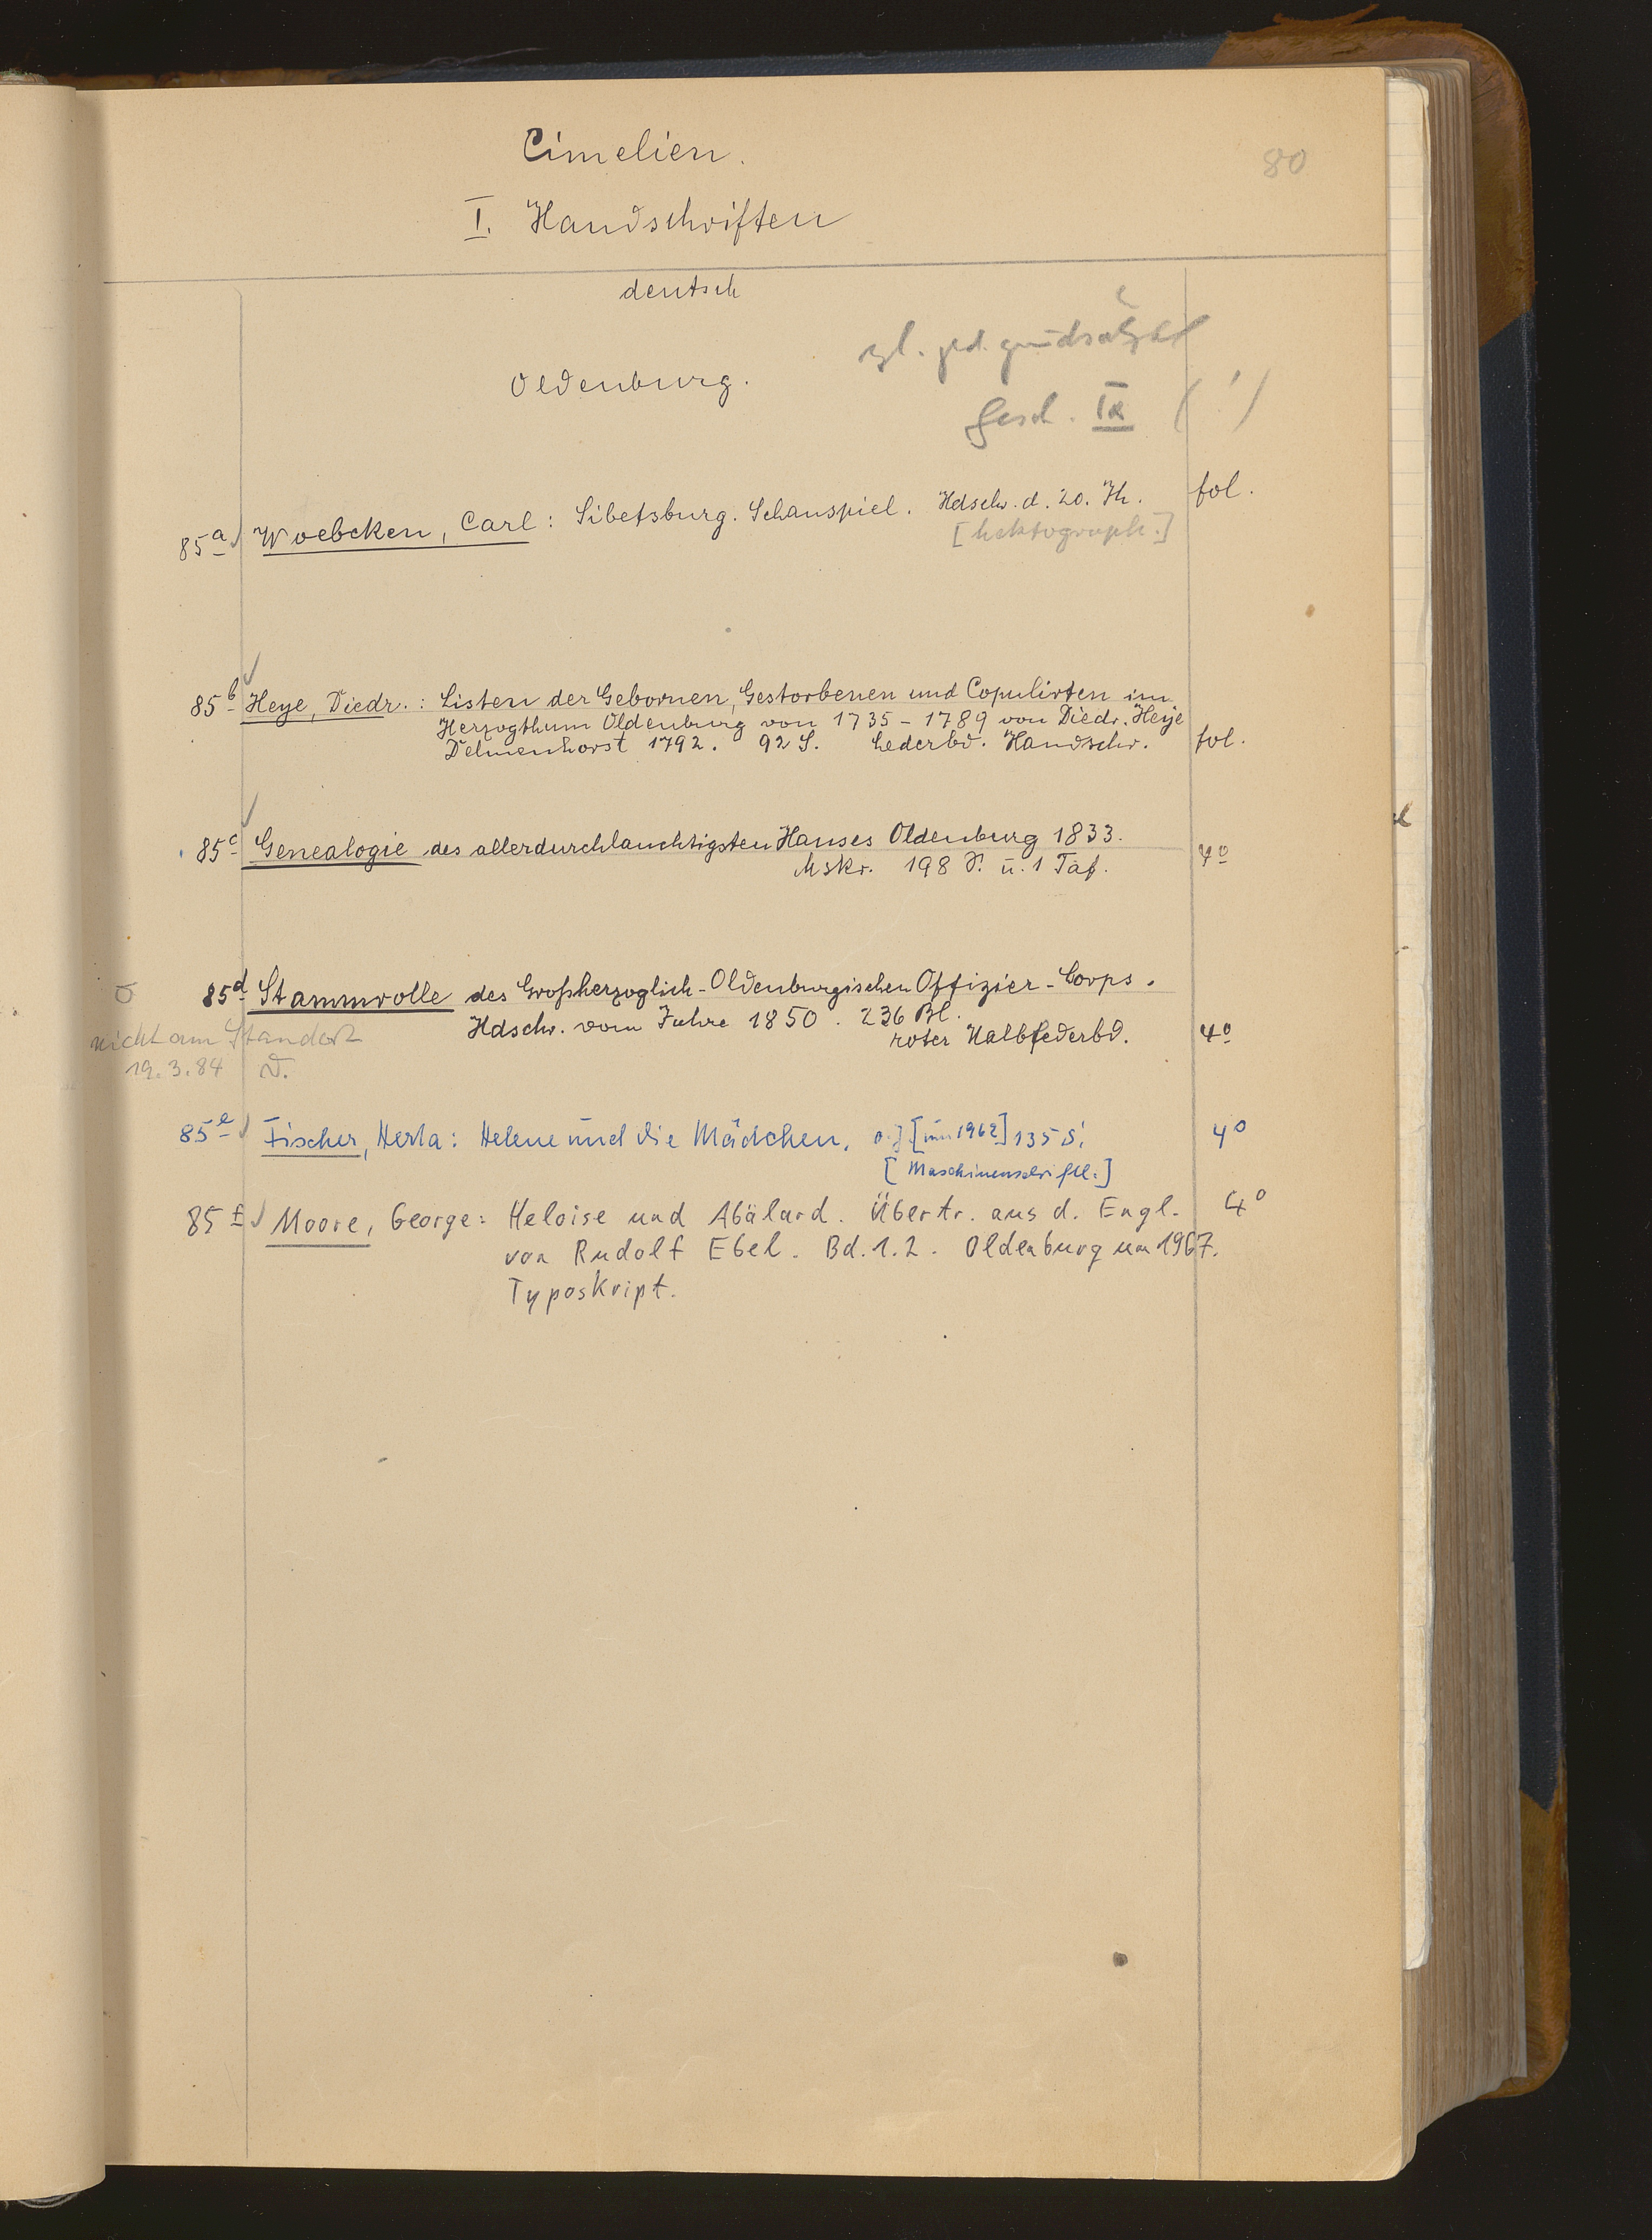 Cimelien.
80
I. Handschriften
deutsch
Oldenburg.
Gesch. IX (!)
85a Woebcken, Carl: Sibetsburg. Schauspiel. Hdschr. d. 20. Jh. fol.
[hektograph.]
85b Heye, Diedr.: Listen der Gebornen, Gestorbenen und Copulirten im
Herzogthum Oldenburg von 1735-1789 von Diedr. Heye
Delmenhorst 1792. 92 S. Lederbd. Handschr. fol.
85c Genealogie des allerdurchlauchtigsten Hauses Oldenburg 1833.
Mskr. 198 S. u. 1 Taf. 4o
85d Stammrolle des Großherzoglich-Oldenburgischen Offizier-Corps.
Hdschr. vom Jahre 1850. 236 Bl.
roter Halblederbd. 4o
nicht am Standort
19.3.84
85e Fischer, Herta: Helene und die Mädchen. o.J. [um 1962] 135 S. 4o
[Maschinenschriftl.]
85f Moore, George: Heloise und Abälard. Übertr. aus d. Engl. 4o
von Rudolf Ebel. Bd. 1.2. Oldenburg um 1967.
Typoskript.